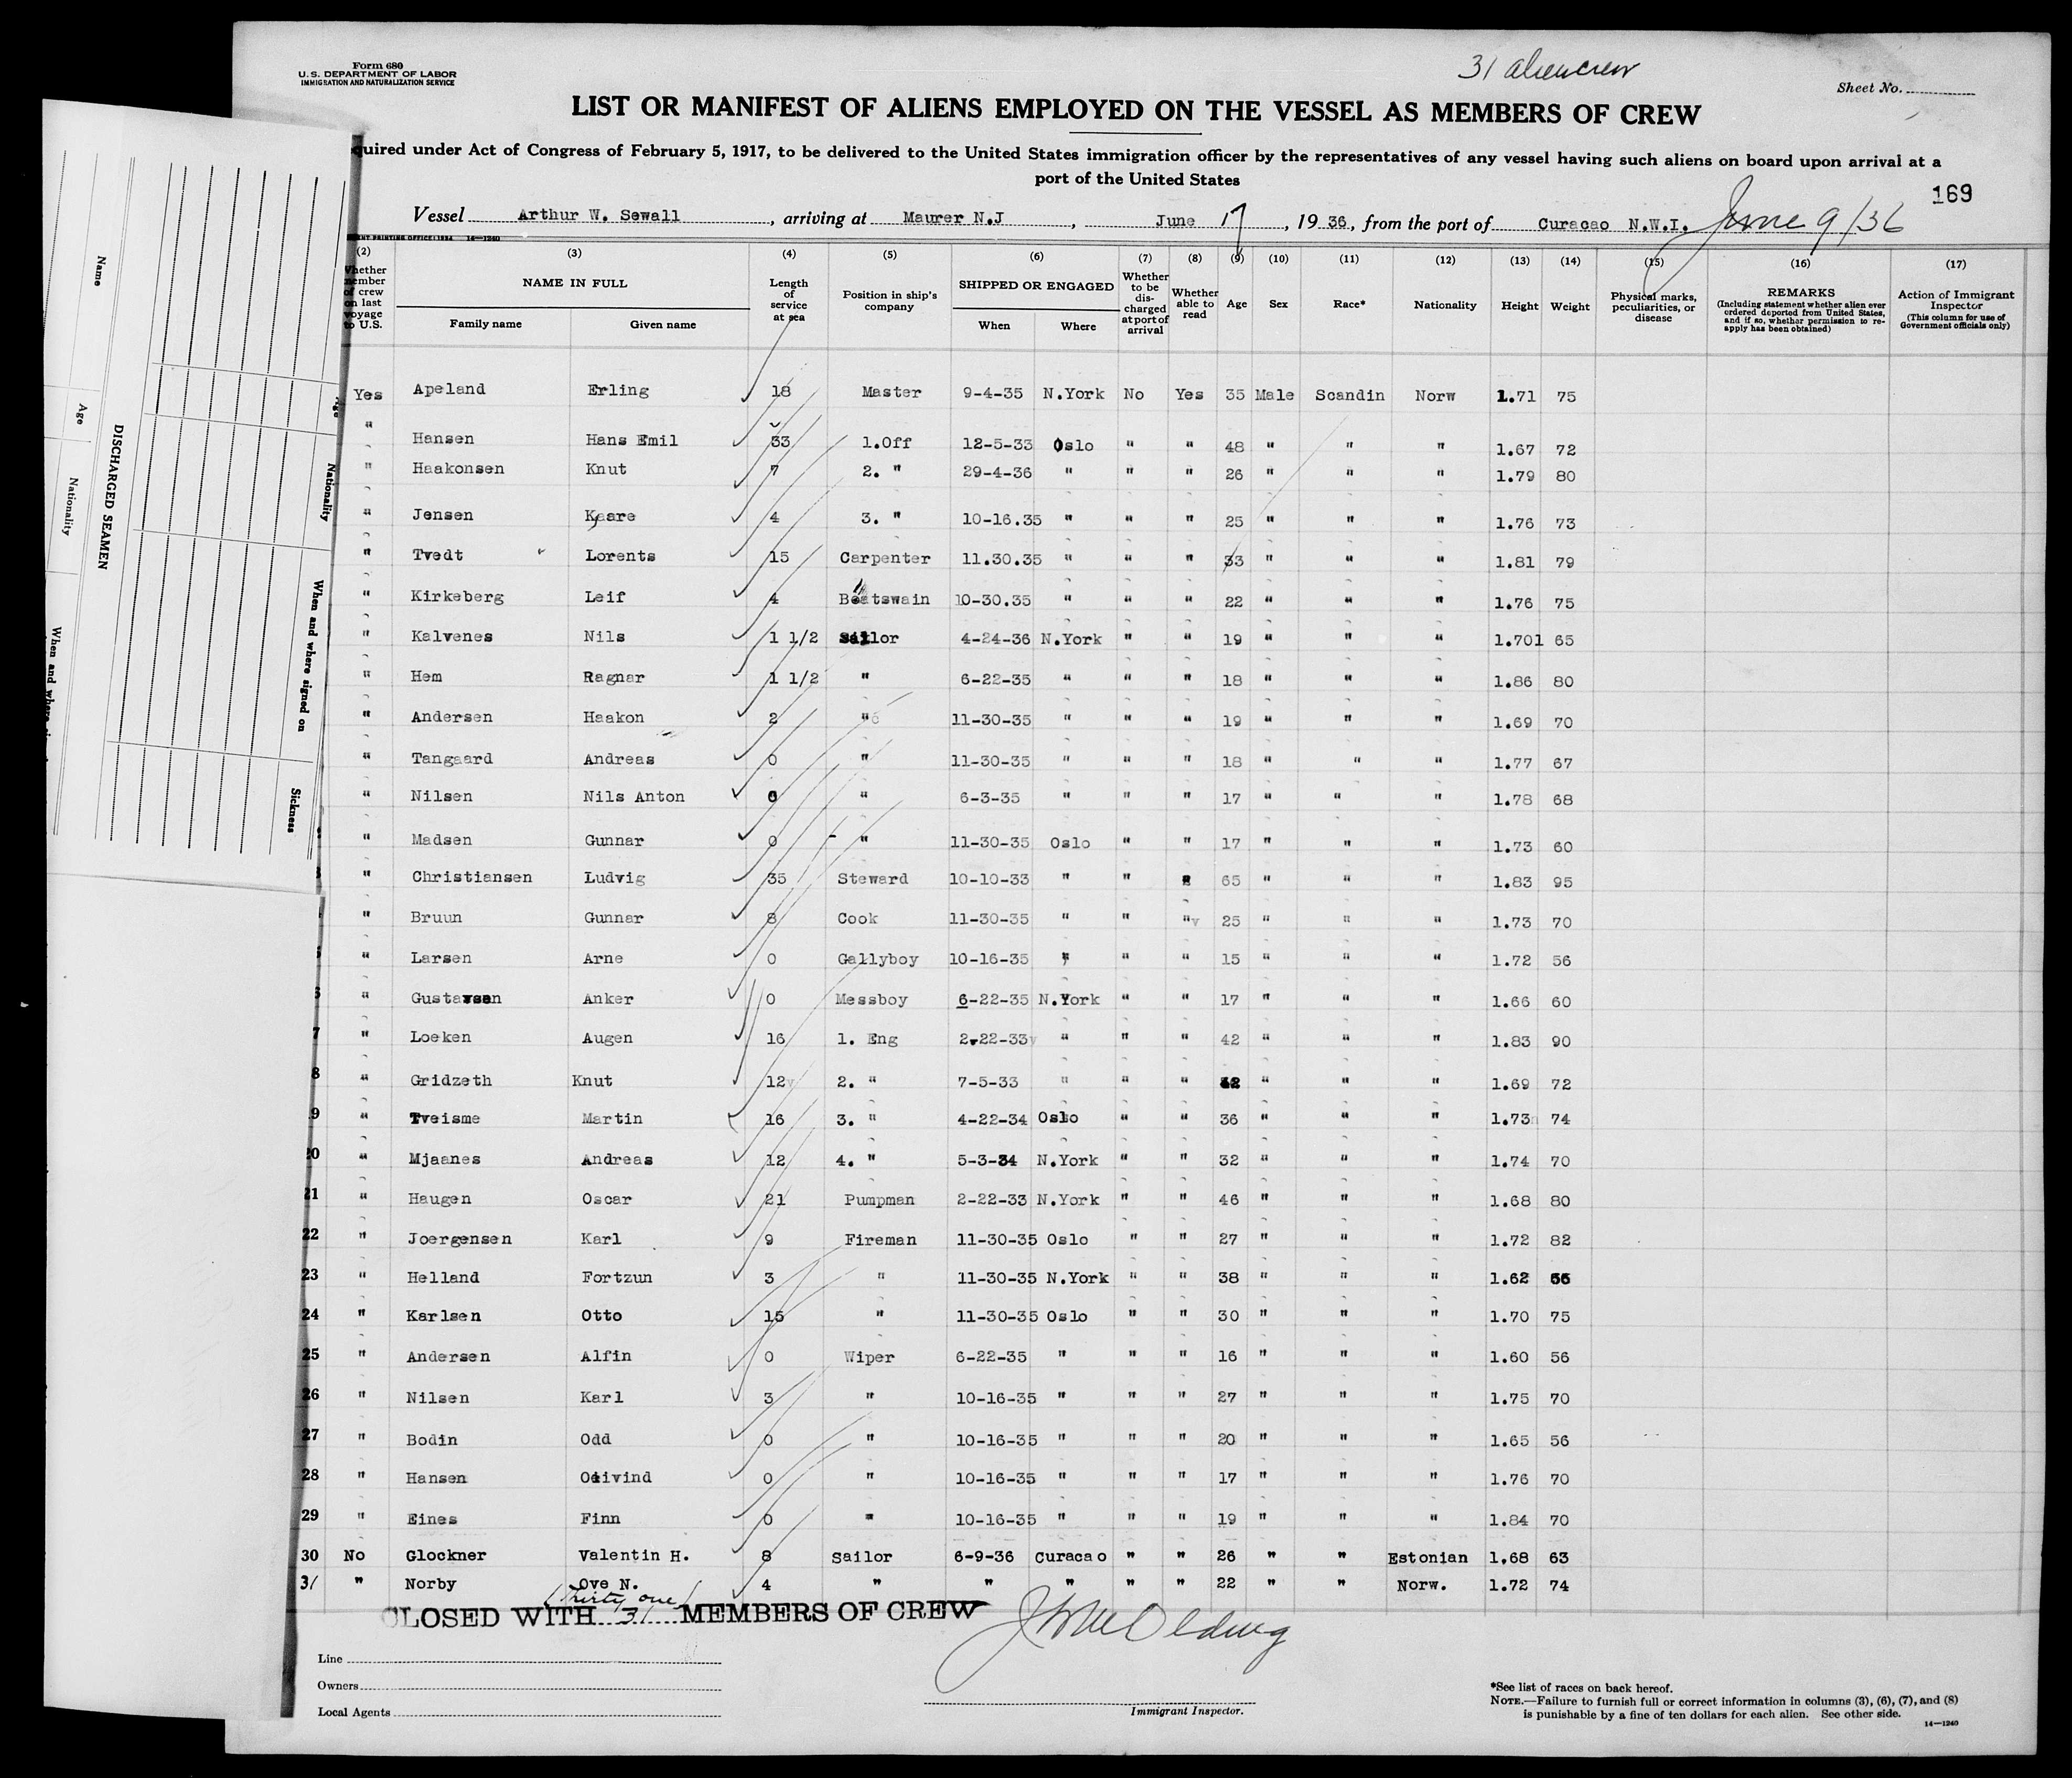 Form 680
U.S. DEPARTMENT OF LABOR
IMMIGRATION AND NATURALIZATION SERVICE
31 alien crew
Sheet No.
LIST OR MANIFEST OF ALIENS EMPLOYED ON THE VESSEL AS MEMBERS OF CREW
quired under Act of Congress of February 5, 1917, to be delivered to the United States immigration officer by the representatives of any vessel having such aliens on board upon arrival at a
port of the United States
169
Vessel Arthur W. Sewall, arriving at Maurer N.J, June 17, 19 36, from the port of Curacao N.W.I. June 9/36
14—1240
(2) (3) (4) (5) (6) (7) (8) (9) (10) (11) (12) (13) (14) (15) (16) (17)
Whether member of crew on last voyage to U.S. NAME IN FULL Family name Given name Length of service at sea Position in ship's company SHIPPED OR ENGAGED When Where Whether to be discharged at port of arrival Whether able to read Age Sex Race* Nationality Height Weight Physical marks, peculiarities, or disease REMARKS (Including statement whether alien ever ordered deported from United States, and if so, whether permission to re-apply has been obtained) Action of Immigrant Inspector (This column for use of Government officials only)
Yes Apeland Erling 18 Master 9-4-35 N.York No Yes 35 Male Scandin Norw 1.71 75
" Hansen Hans Emil 33 1.Off 12-5-33 Oslo " " 48 " " " 1.67 72
" Haakonsen Knut 7 2. " 29-4-36 " " " 26 " " " 1.79 80
" Jensen Kaare 4 3. " 10-16.35 " " " 25 " " " 1.76 73
" Tvedt Lorents 15 Carpenter 11.30.35 " " " 33 " " " 1.81 79
" Kirkeberg Leif 4 Boatswain 10-30.35 " " " 22 " " " 1.76 75
" Kalvenes Nils 1 1/2 Sailor 4-24-36 N.York " " 19 " " " 1.701 65
" Hem Ragnar 1 1/2 " 6-22-35 " " " 18 " " " 1.86 80
" Andersen Haakon 2 " 11-30-35 " " " 19 " " " 1.69 70
" Tangaard Andreas 0 " 11-30-35 " " " 18 " " " 1.77 67
" Nilsen Nils Anton 0 " 6-3-35 " " " 17 " " " 1.78 68
" Madsen Gunnar 0 " 11-30-35 Oslo " " 17 " " " 1.73 60
" Christiansen Ludvig 35 Steward 10-10-33 " " " 65 " " " 1.83 95
" Bruun Gunnar 8 Cook 11-30-35 " " " 25 " " " 1.73 70
" Larsen Arne 0 Gallyboy 10-16-35 " " " 15 " " " 1.72 56
" Gustavsen Anker 0 Messboy 6-22-35 N.York " " 17 " " " 1.66 60
7 " Loeken Augen 16 1. Eng 2-22-33 " " " 42 " " " 1.83 90
8 " Gridzeth Knut 12 2. " 7-5-33 " " " 42 " " " 1.69 72
9 " Tveisme Martin 16 3. " 4-22-34 Oslo " " 36 " " " 1.73 74
20 " Mjaanes Andreas 12 4. " 5-3-34 N.York " " 32 " " " 1.74 70
21 " Haugen Oscar 21 Pumpman 2-22-33 N.York " " 46 " " " 1.68 80
22 " Joergensen Karl 9 Fireman 11-30-35 Oslo " " 27 " " " 1.72 82
23 " Helland Fortzun 3 " 11-30-35 N.York " " 38 " " " 1.62 56
24 " Karlsen Otto 15 " 11-30-35 Oslo " " 30 " " " 1.70 75
25 " Andersen Alfin 0 Wiper 6-22-35 " " " 16 " " " 1.60 56
26 " Nilsen Karl 3 " 10-16-35 " " " 27 " " " 1.75 70
27 " Bodin Odd 0 " 10-16-35 " " " 20 " " " 1.65 56
28 " Hansen Oeivind 0 " 10-16-35 " " " 17 " " " 1.76 70
29 " Eines Finn 0 " 10-16-35 " " " 19 " " " 1.84 70
30 No Glockner Valentin H. 8 Sailor 6-9-36 Curacao " " 26 " " Estonian 1.68 63
31 " Norby Ove N. 4 " " " " " 22 " " Norw. 1.72 74
(Thirty one)
CLOSED WITH 31 MEMBERS OF CREW
Line
Owners
Local Agents
Immigrant Inspector.
*See list of races on back hereof.
NOTE.—Failure to furnish full or correct information in columns (3), (6), (7), and (8)
is punishable by a fine of ten dollars for each alien. See other side.
14—1240
DISCHARGED SEAMEN
Name Age Nationality When and where
Age Nationality When and where signed on Sickness